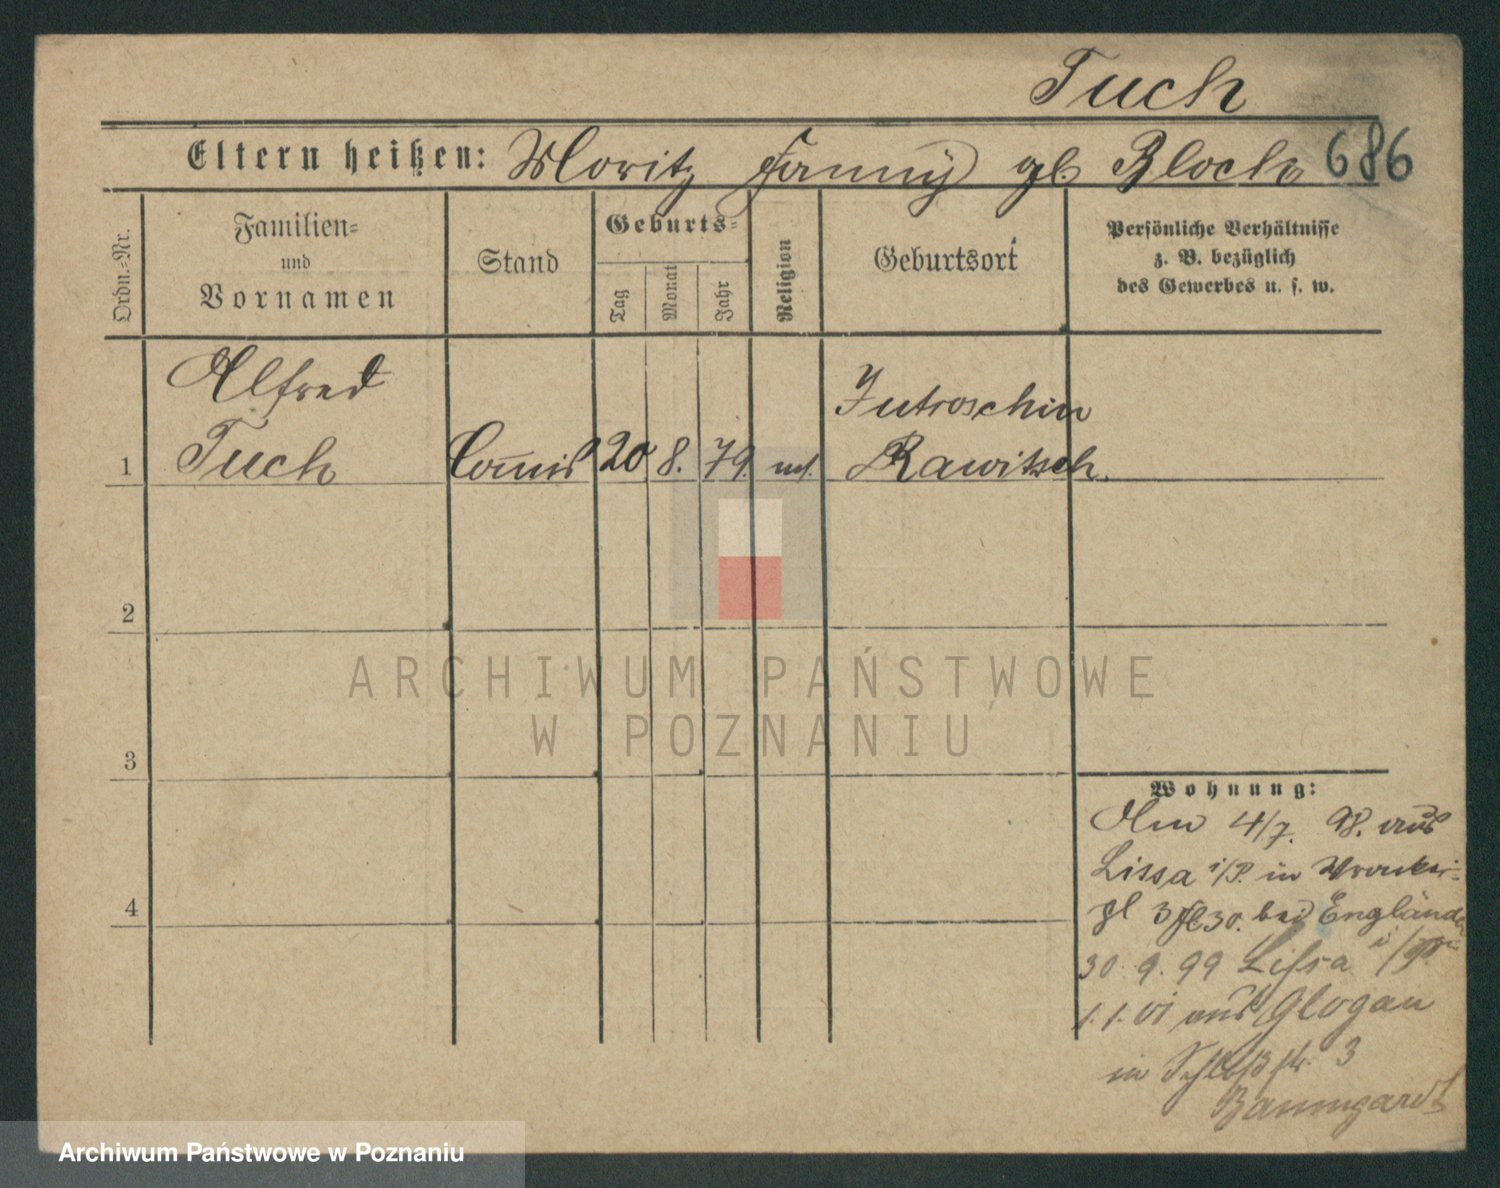 Tuch
Eltern heißen: Moritz Fanny gb Bloch 686
Ordn.=Nr.
Familien=
und
Vornamen
Stand
Geburts=
Tag
Monat
Jahr
Religion
Geburtsort
Persönliche Verhältnisse
z. B. bezüglich
des Gewerbes u. s. w.
Alfred
Jutroschin
1 Tuch Commis 20 8. 79. Rawitsch.
2
ARCHIWUM PAŃSTWOWE
W POZNANIU
3
Wohnung:
4/7. 98. aus
Lissa i/P. in Wronker=
3 30. bei Engländer
4
30. 9. 99 Lissa i/P.
1. 1. 01 aus Glogau
in Schloßstr. 3
Baumgardt
Archiwum Państwowe w Poznaniu